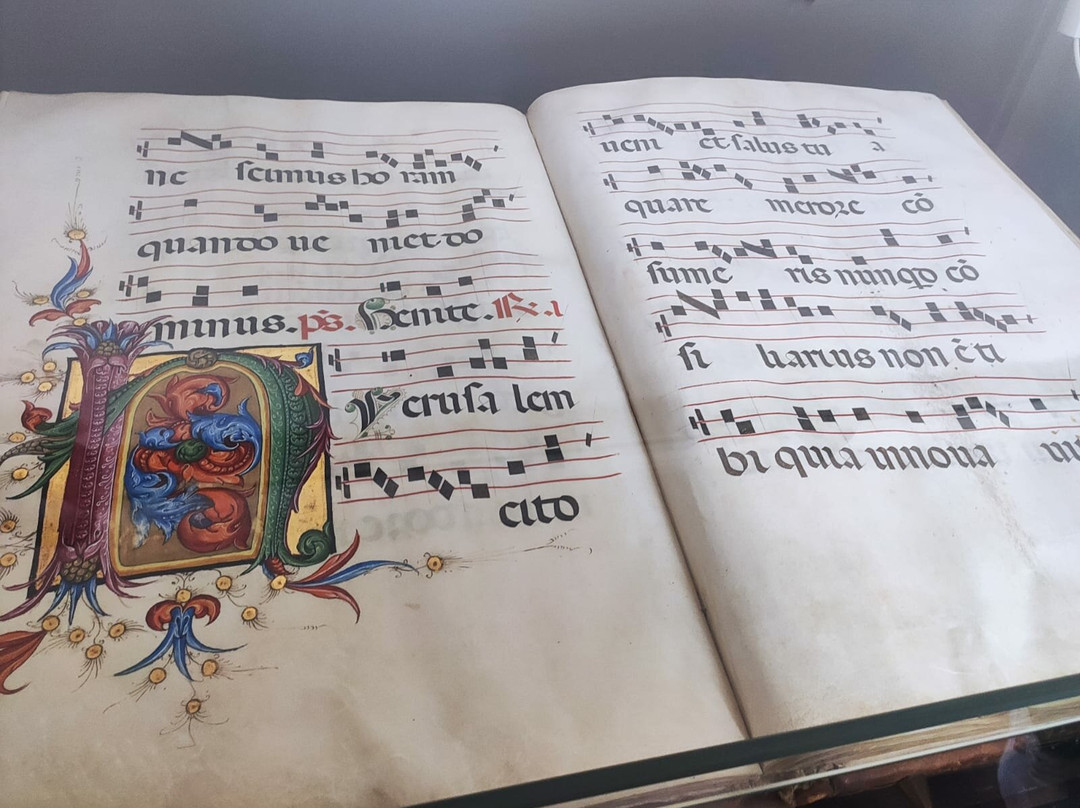 ne scimus ho ram
quando ue niet do
minus. ps̄. Uenite. ℟. i
h Ierusa lem
cito
ueni et salus tu a
quare merore cō
sume ris nunqd̄ cō
si liarius non ē ti
bi quia innoua